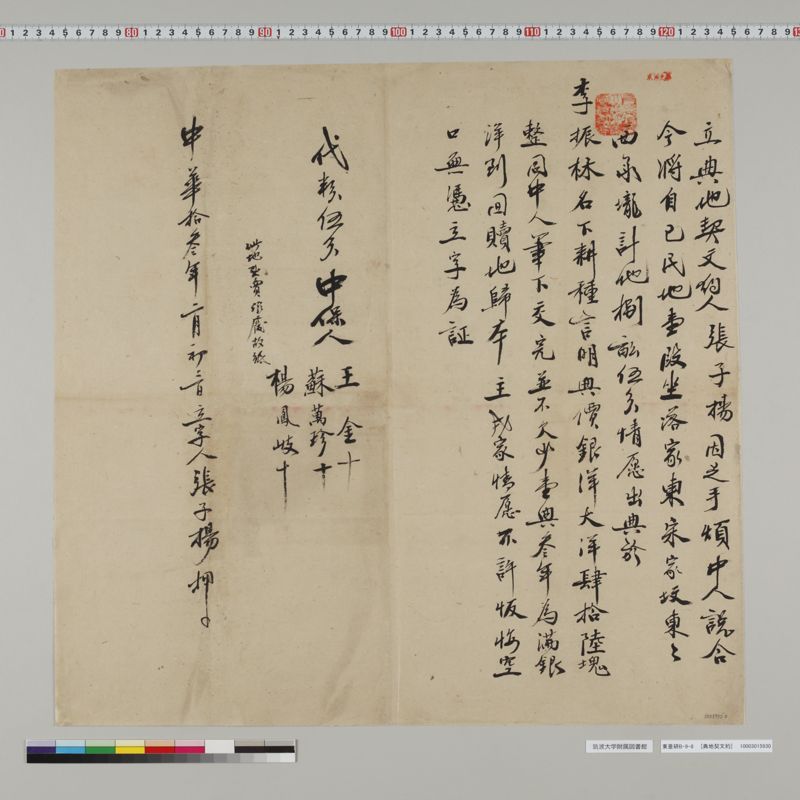 立典地契文約人張子楊因乏手煩中人說合
今將自己民地壹段坐落家東宋家坟東之
西朿壠計地捌畝伍分情愿出典於
李振林名下耕種言明典價銀洋大洋肆拾陸塊
整同中人筆下交完並不欠少壹典叁年為滿銀
洋到回贖地歸本主成家情愿不許恢悔空
口無憑立字為証
代粮伍分中保人
王金十
蘇萬珍十
楊鳳岐十
此地
中華拾叁年二月初二日立字人張子楊押
筑波大学附属図書館
[典地契文約]
10003015930